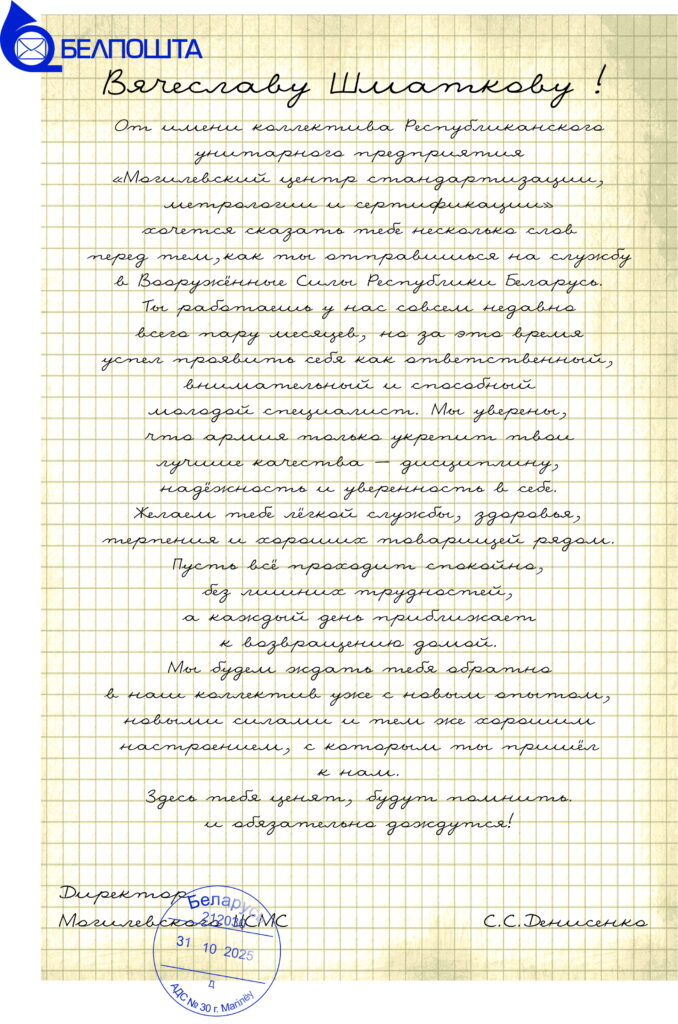 БЕЛПОШТА
Вячеславу Шматкову !
От имени коллектива Республиканского
унитарного предприятия
«Могилевский центр стандартизации,
метрологии и сертификации»
хочется сказать тебе несколько слов
перед тем,как ты отправишься на службу
в Вооружённые Силы Республики Беларусь.
Ты работаешь у нас совсем недавно
всего пару месяцев, но за это время
успел проявить себя как ответственный,
внимательный и способный
молодой специалист. Мы уверены,
что армия только укрепит твои
лучшие качества – дисциплину,
надёжность и уверенность в себе.
Желаем тебе лёгкой службы, здоровья,
терпения и хороших товарищей рядом.
Пусть всё проходит спокойно,
без лишних трудностей,
а каждый день приближает
к возвращению домой.
Мы будем ждать тебя обратно
в наш коллектив уже с новым опытом,
новыми силами и тем же хорошим
настроением, с которым ты пришёл
к нам.
Здесь тебя ценят, будут помнить.
и обязательно дождутся!
Директор
Могилевского ЦСМС
С.С.Денисенко
Беларусь
212030
31 10 2025
д
АДС № 30 г. Магілёў